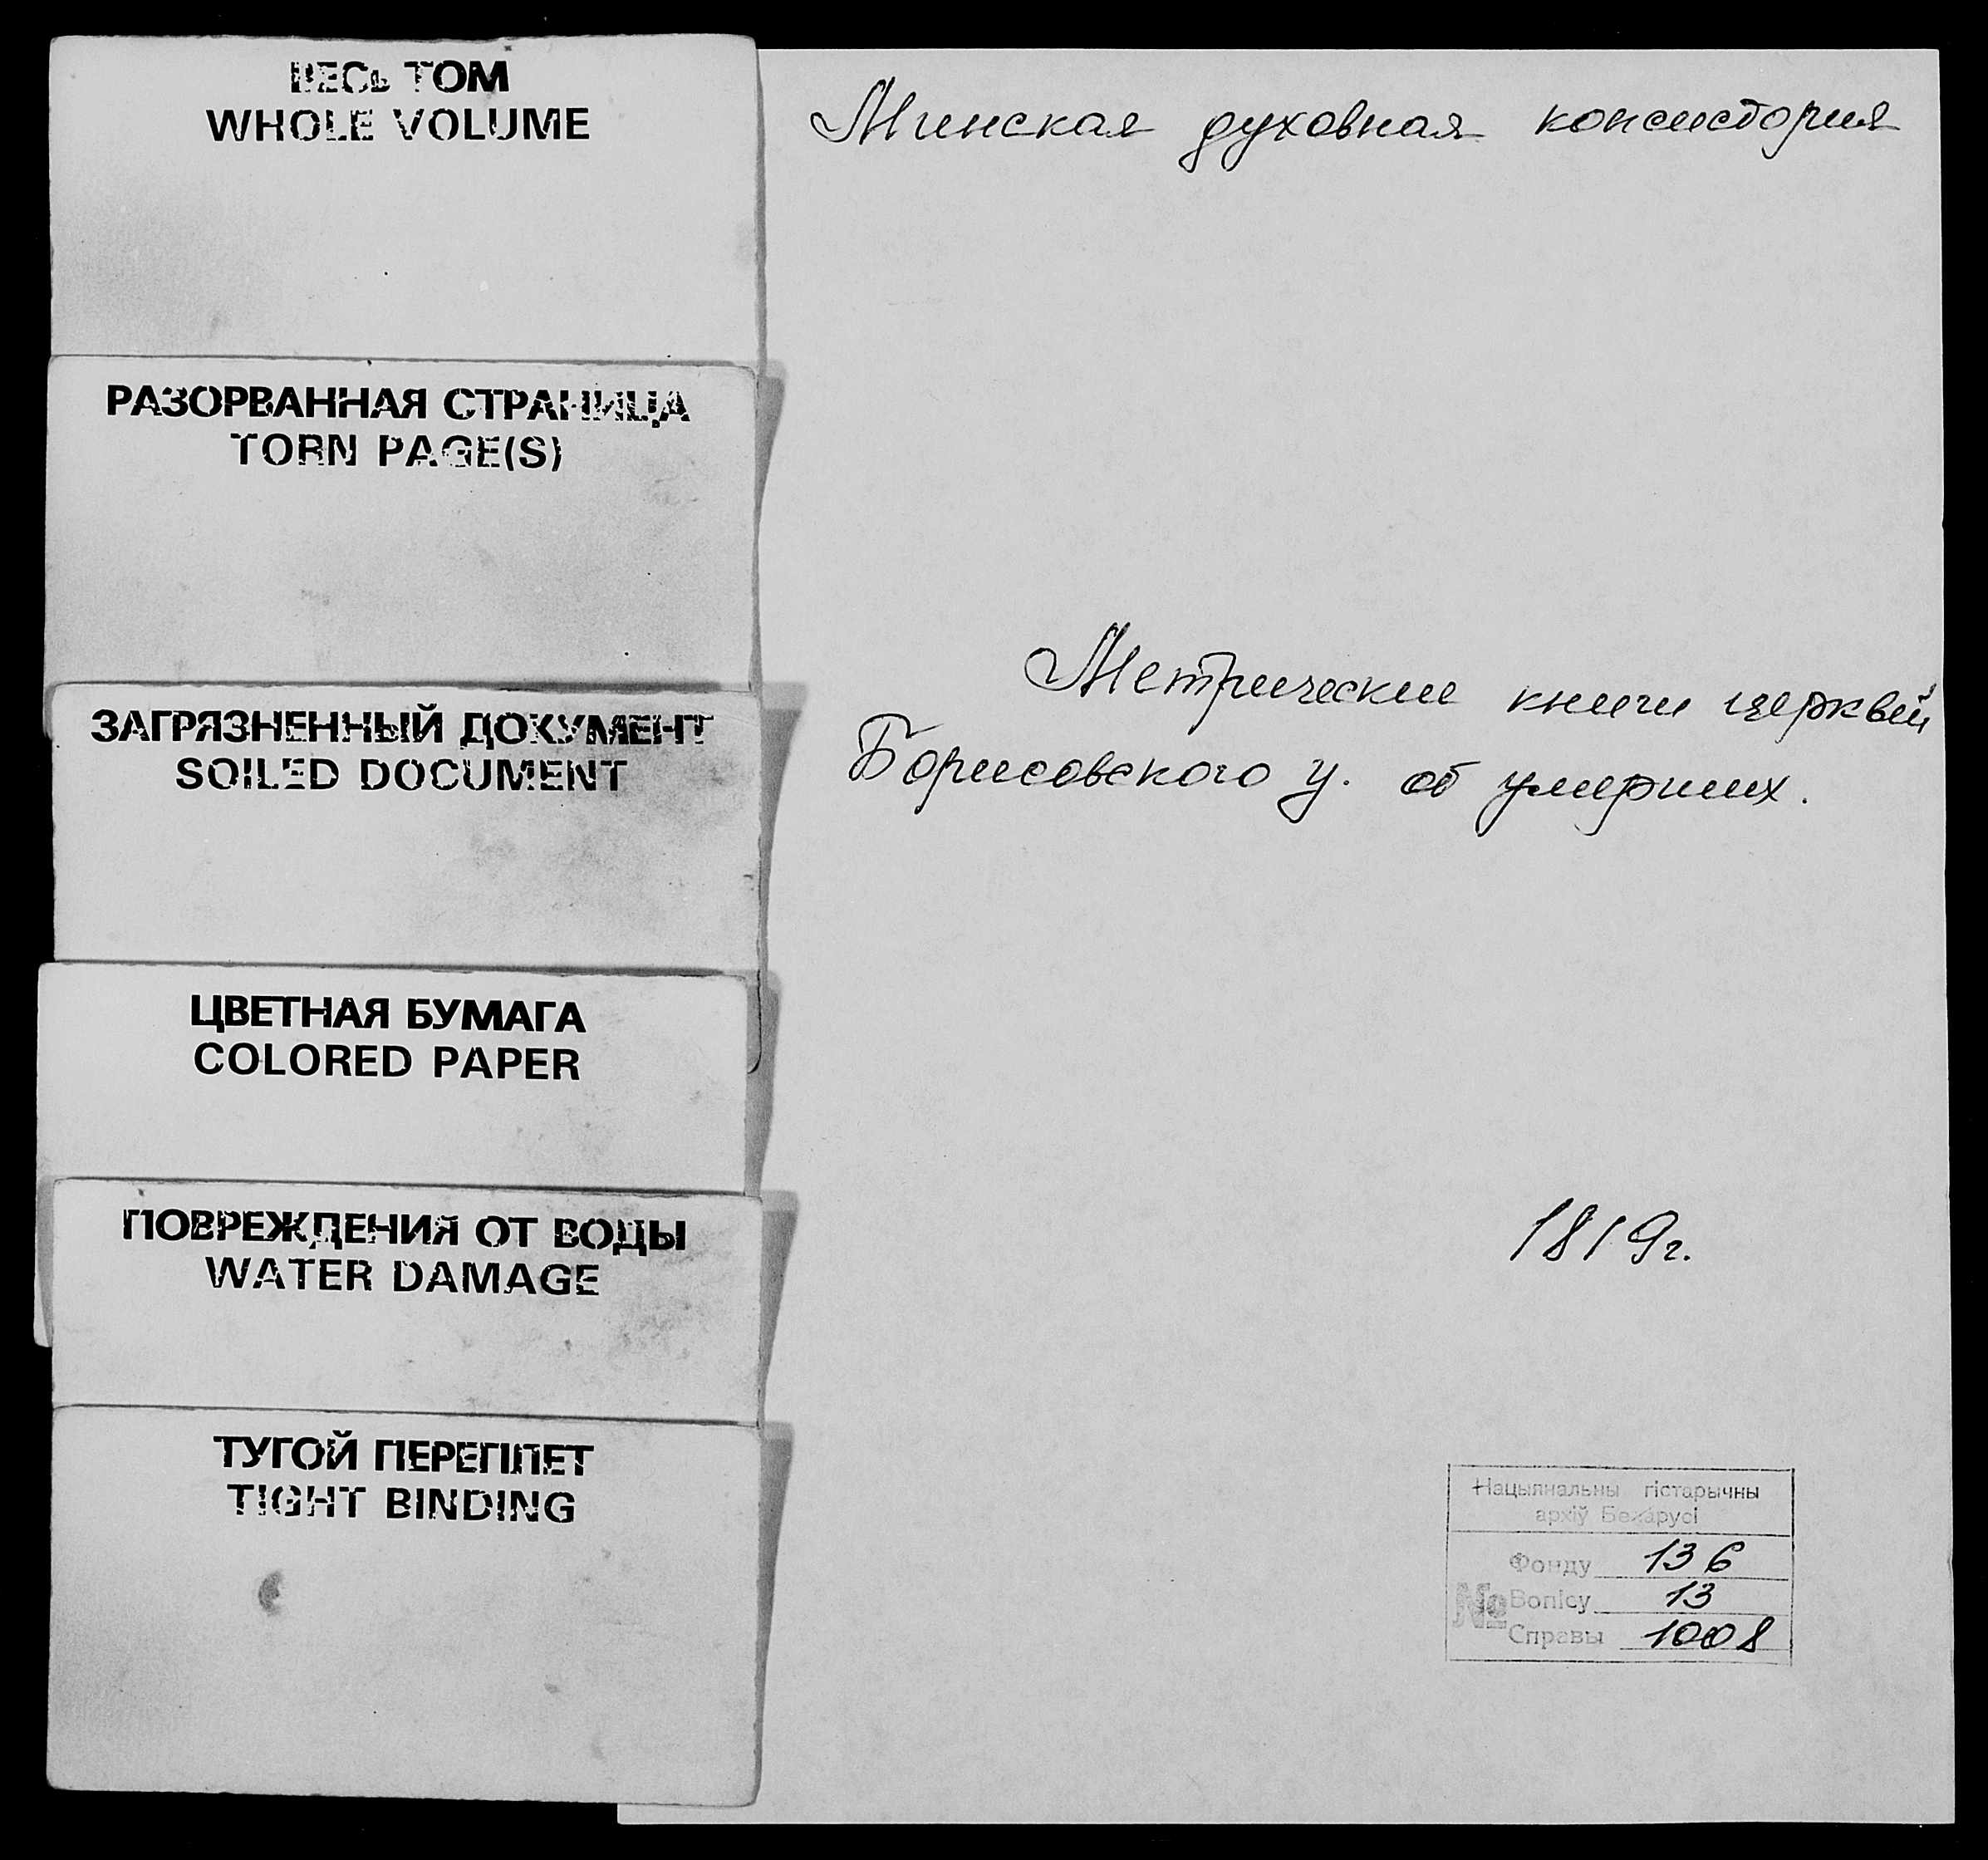 ВЕСЬ ТОМ
WHOLE VOLUME
РАЗОРВАННАЯ СТРАНИЦА
TORN PAGE(S)
ЗАГРЯЗНЕННЫЙ ДОКУМЕНТ
SOILED DOCUMENT
ЦВЕТНАЯ БУМАГА
COLORED PAPER
ПОВРЕЖДЕНИЯ ОТ ВОДЫ
WATER DAMAGE
ТУГОЙ ПЕРЕПЛЕТ
TIGHT BINDING
Минская духовная консистория
Метрические книги церквей
Борисовского у. об умерших.
1819г.
Нацыянальны гістарычны
архіў Беларусі
Фонду 136
№ Вопісу 13
Справы 1008